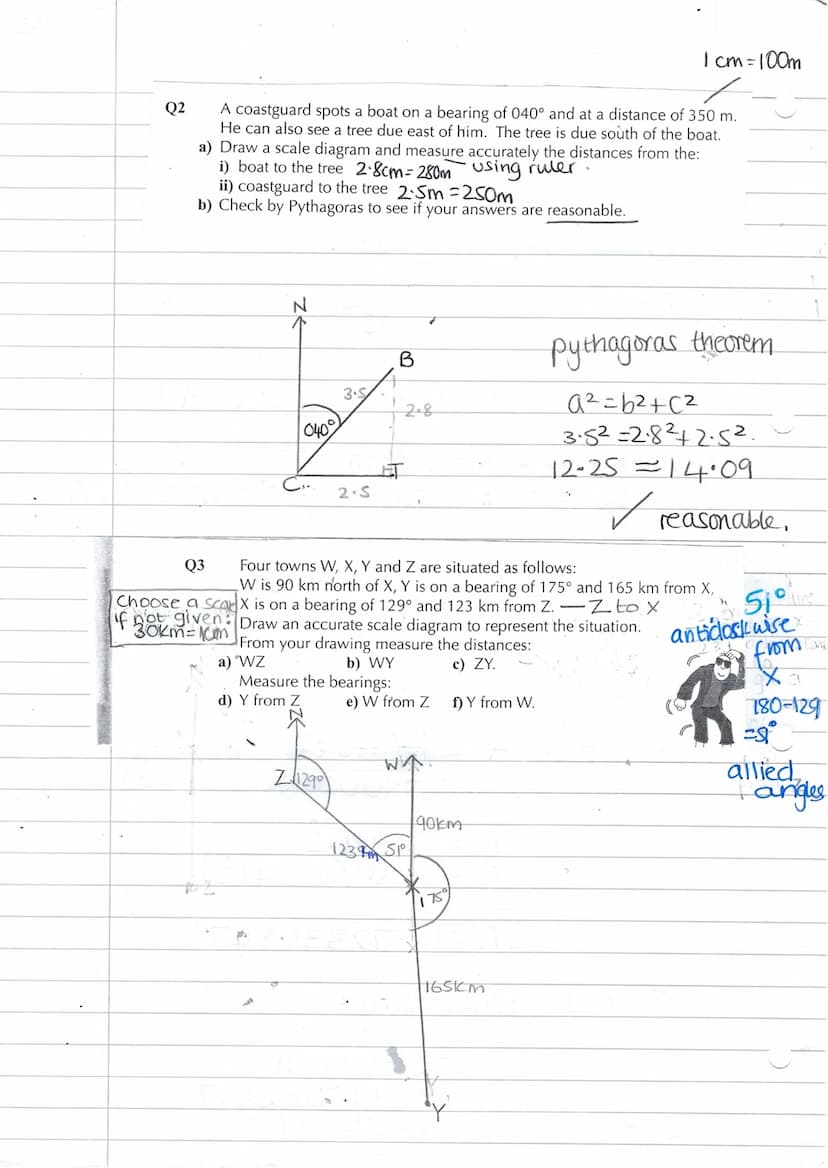 1cm=100m
Q2 A coastguard spots a boat on a bearing of 040° and at a distance of 350 m.
He can also see a tree due east of him. The tree is due south of the boat.
a) Draw a scale diagram and measure accurately the distances from the:
i) boat to the tree 2.8cm = 280m – using ruler.
ii) coastguard to the tree 2.5m = 250m
b) Check by Pythagoras to see if your answers are reasonable.
N
B
3.5
2.8
040°
C
T
2.5
pythagoras theorem
a² = b² + c²
3.5² = 2.8² + 2.5².
12.25 ≈ 14.09
✓ reasonable.
Q3 Four towns W, X, Y and Z are situated as follows:
W is 90 km north of X, Y is on a bearing of 175° and 165 km from X,
X is on a bearing of 129° and 123 km from Z. — Z to X
Draw an accurate scale diagram to represent the situation.
From your drawing measure the distances:
a) WZ b) WY c) ZY.
Measure the bearings:
d) Y from Z e) W from Z f) Y from W.
Choose a scale
if not given:
30km = 1cm
51°
anticlockwise
from
X
180-129
=51°
allied
angles
N
Z 129°
W
90km
123km 51°
X
175°
165km
Y